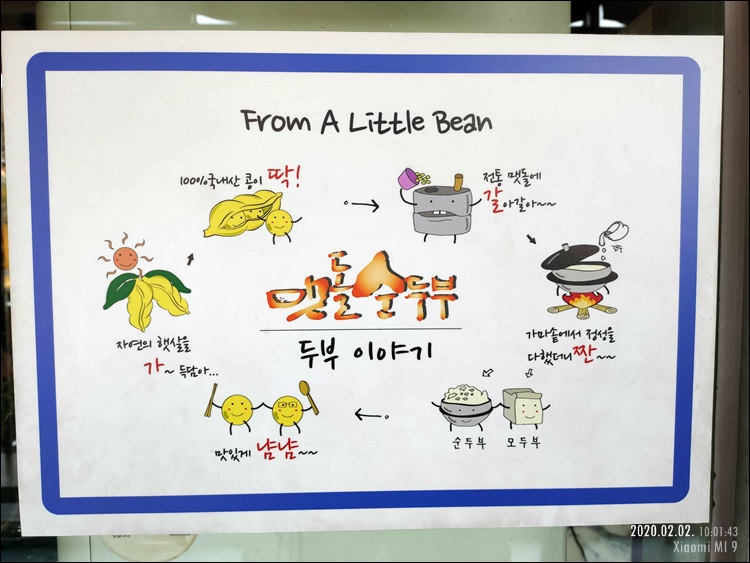 From A Little Bean
100%국내산 콩이 딱!
전통 맷돌에
갈아갈아~~
간수
가마솥에서 정성을
다했더니 짠~~
순두부 모두부
맛있게 냠냠~~
자연의 햇살을
가~득담아...
맷돌순두부
두부 이야기
2020.02.02. 10:01:43
Xiaomi MI 9